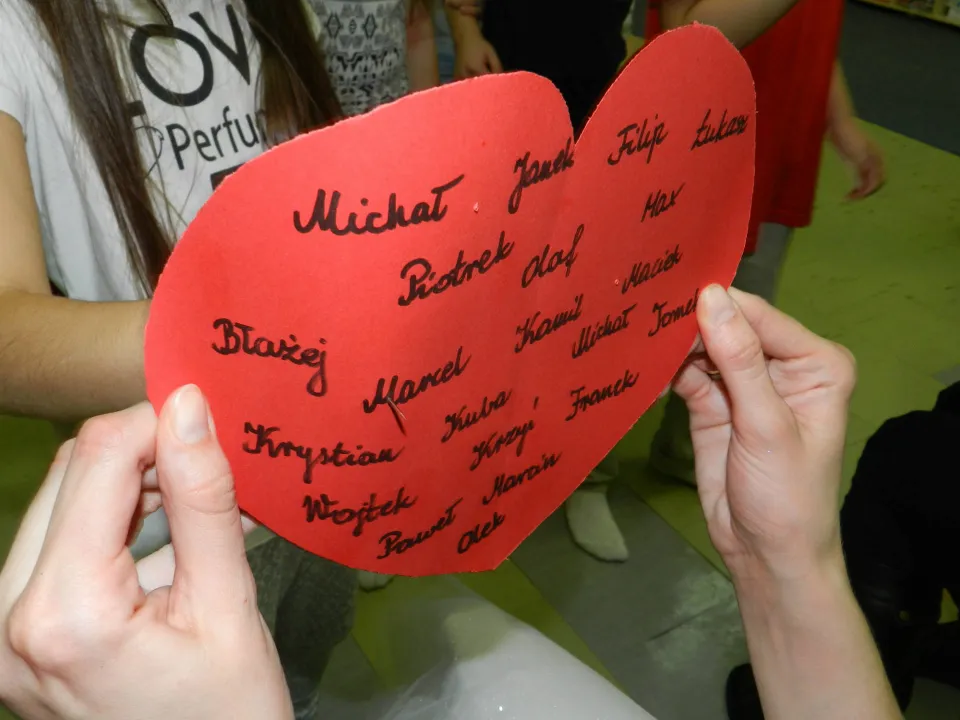 LOV
Perfu
Michał Janek Filip Łukasz
Piotrek Olaf Max
Błażej Kamil Maciek
Marcel Michał Tomek
Krystian Kuba Franek
Wojtek Krzyś
Paweł Marcin
Olek